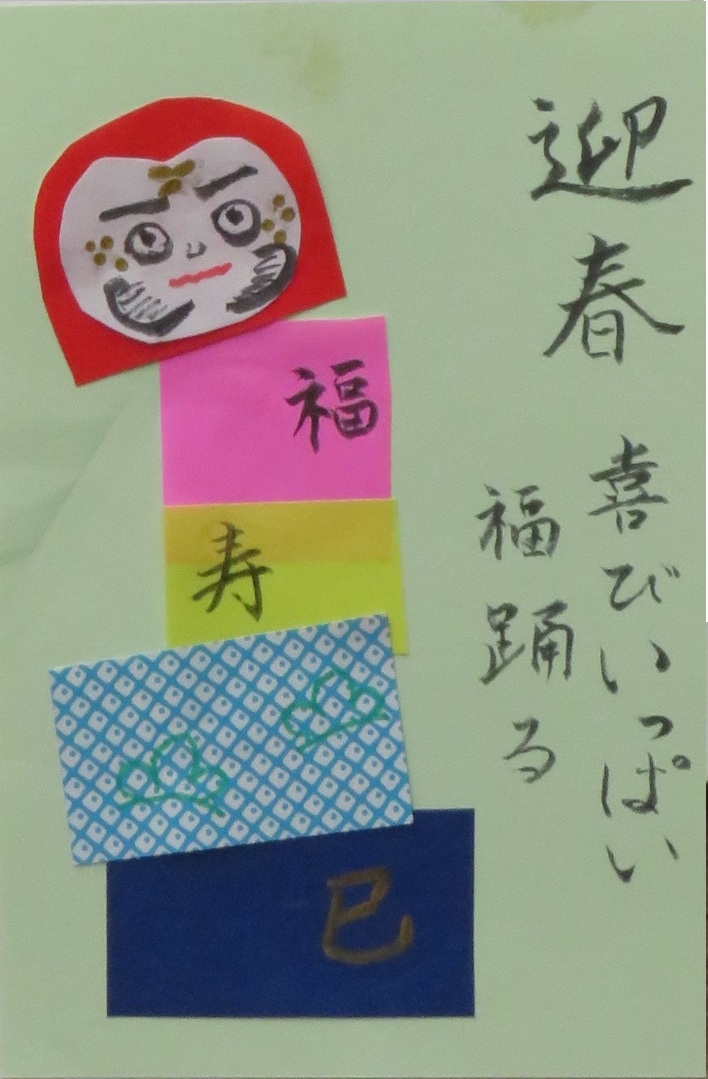 迎春
喜びいっぱい
福踊る
福
寿
巳